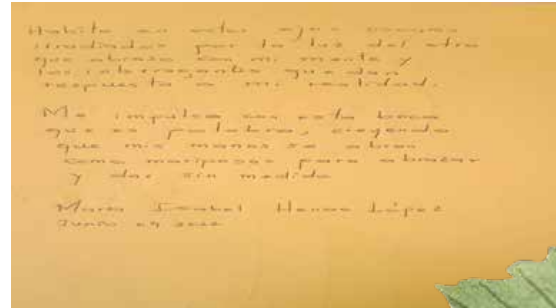 Habito en estos ojos
irradiados por la luz del otro
que abrazo con mi mente y
los interrogantes que dan
respuesta a mi realidad.
Me impulsa con esta boca
que es palabra, creyendo
que mis manos se abren
como mariposas para abrazar
y dar sin medida
María Isabel Henao López
Junio 09 2022